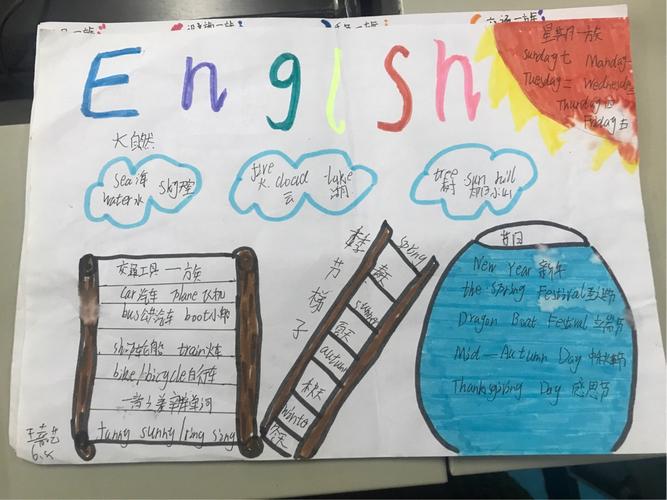 English
星期一族
Sunday七 Monday一
Tuesday二 Wednesday三
Thursday四
Friday五
大自然
sea海 sky天空
water水
fire cloud lake
火 云 湖
tree sun hill
树 小山
交通工具一族
car汽车 plane飞机
bus公共汽车 boot小船
ship轮船 train火车
bike/bicycle自行车
sunny/ring sing
季节梯子
spring
春天
summer
夏天
autumn
秋天
winter
冬天
节日
New Year 新年
the Spring Festival
Dragon Boat Festival
Mid-Autumn Day 中秋节
Thanksgiving Day 感恩节